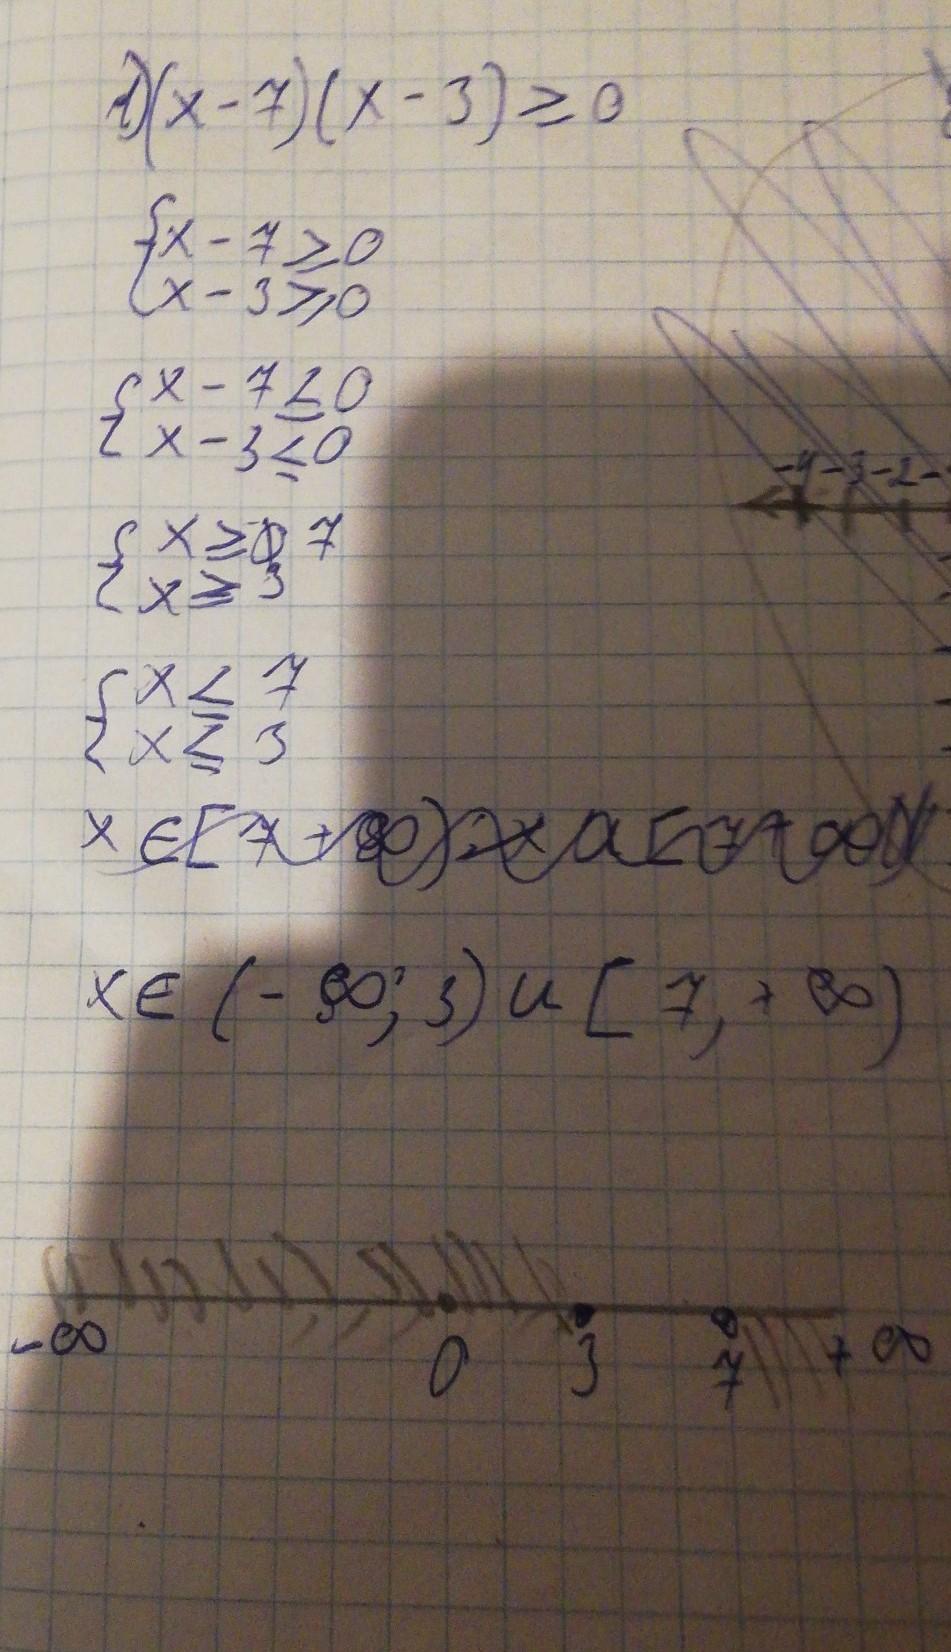 1) (x - 7)(x - 3) ≥ 0
{ x - 7 ≥ 0
{ x - 3 ≥ 0
{ x - 7 ≤ 0
{ x - 3 ≤ 0
{ x ≥ 7
{ x ≥ 3
{ x ≤ 7
{ x ≤ 3
x ∈ [7 + ∞)
x ∈ (-∞; 3) u [7, +∞)
-4 -3 -2 -
-∞ 0 3 7 +∞